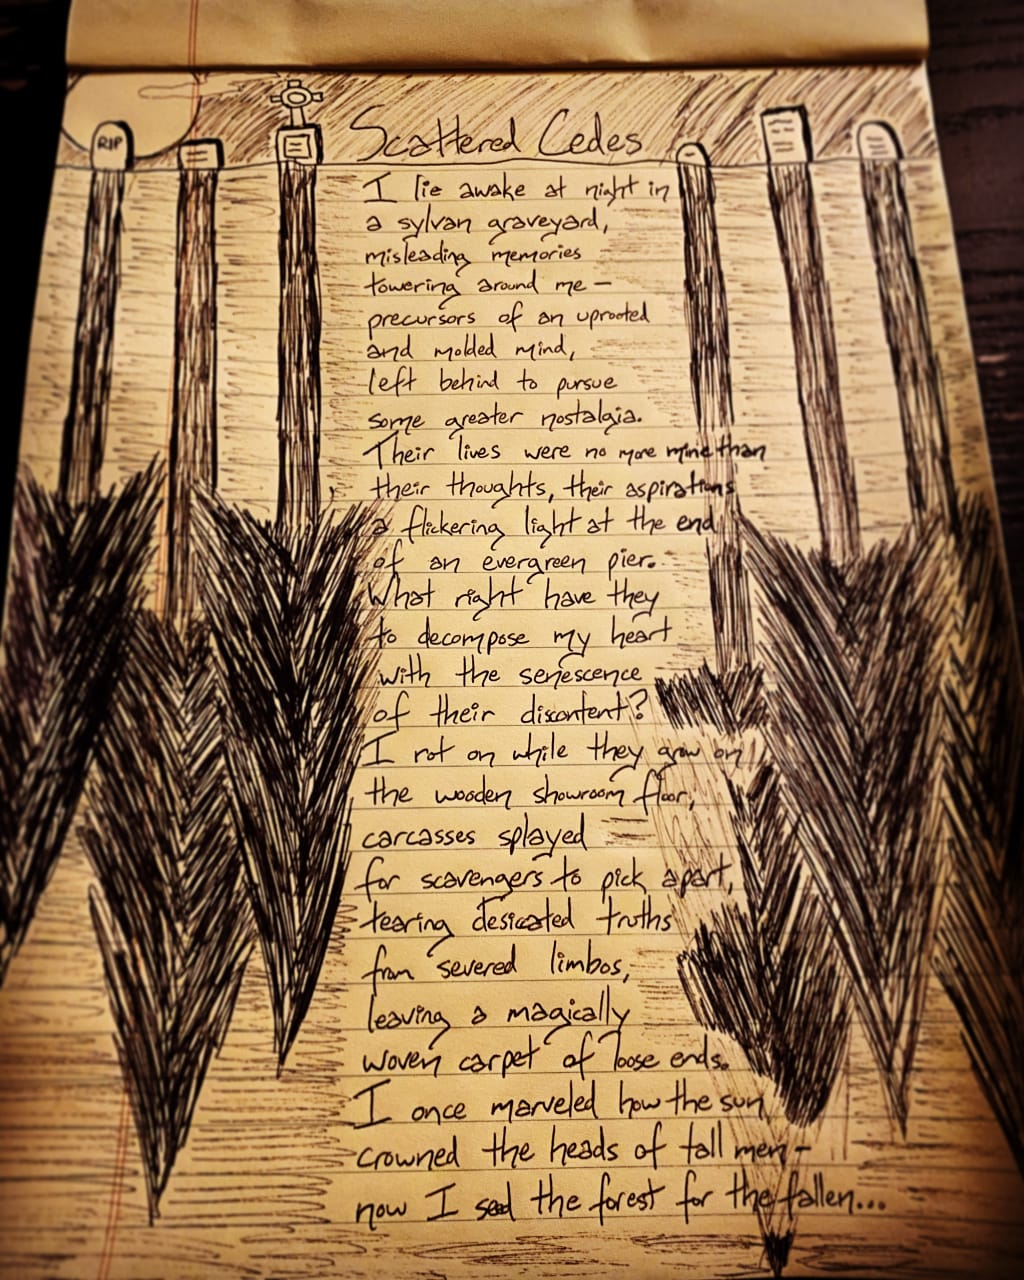 RIP
Scattered Cedes
I lie awake at night in
a sylvan graveyard,
misleading memories
towering around me —
precursors of an uprooted
and molded mind,
left behind to pursue
some greater nostalgia.
Their lives were no more mine than
their thoughts, their aspirations
a flickering light at the end
of an evergreen pier.
What right have they
to decompose my heart
with the senescence
of their discontent?
I rot on while they grow on
the wooden showroom floor,
carcasses splayed
for scavengers to pick apart,
tearing desiccated truths
from severed limbos,
leaving a magically
woven carpet of loose ends.
I once marveled how the sun
crowned the heads of tall men –
now I seed the forest for the fallen...